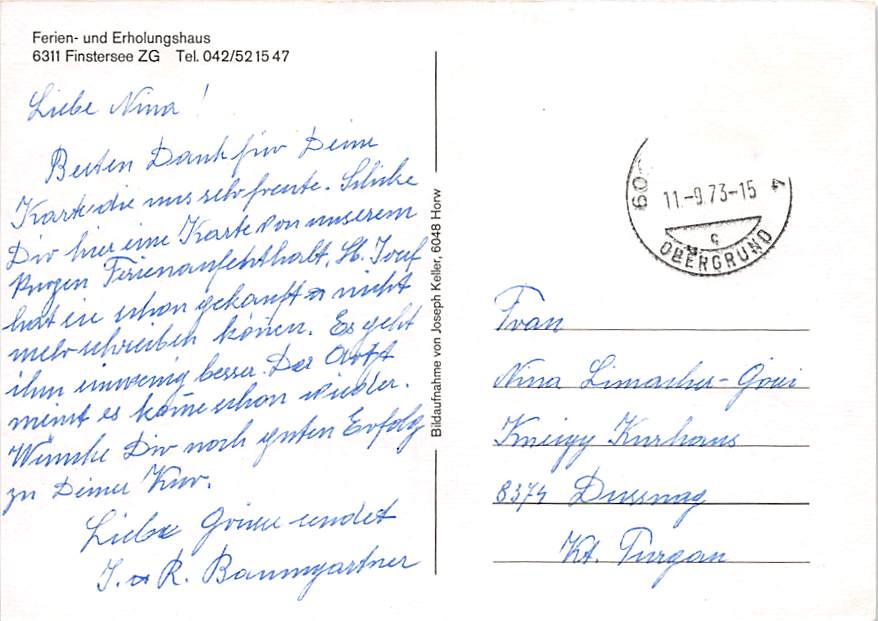 Ferien- und Erholungshaus
6311 Finstersee ZG Tel. 042/52 15 47
Liebe Nina !
Besten Dank für Deine
Karte die uns sehr freute. Schicke
Dir hier eine Karte von unserem
Ferienaufenthalt, St. Josef
hat sie schon gekauft nicht
mehr schreiben können. Es geht
ihm einwenig besser. Der Arzt
meint es komme schon wieder.
Wünsche Dir noch guten Erfolg
zu Deiner Kur.
Liebe Grüsse sendet
J. u R. Baumgartner
Bildaufnahme von Joseph Keller, 6048 Horw
60
11.-9.73-15
4
c
OBERGRUND
Frau
Nina Limacher-
Kneipp Kurhaus
8374 Dussnag
Kt. Turgau